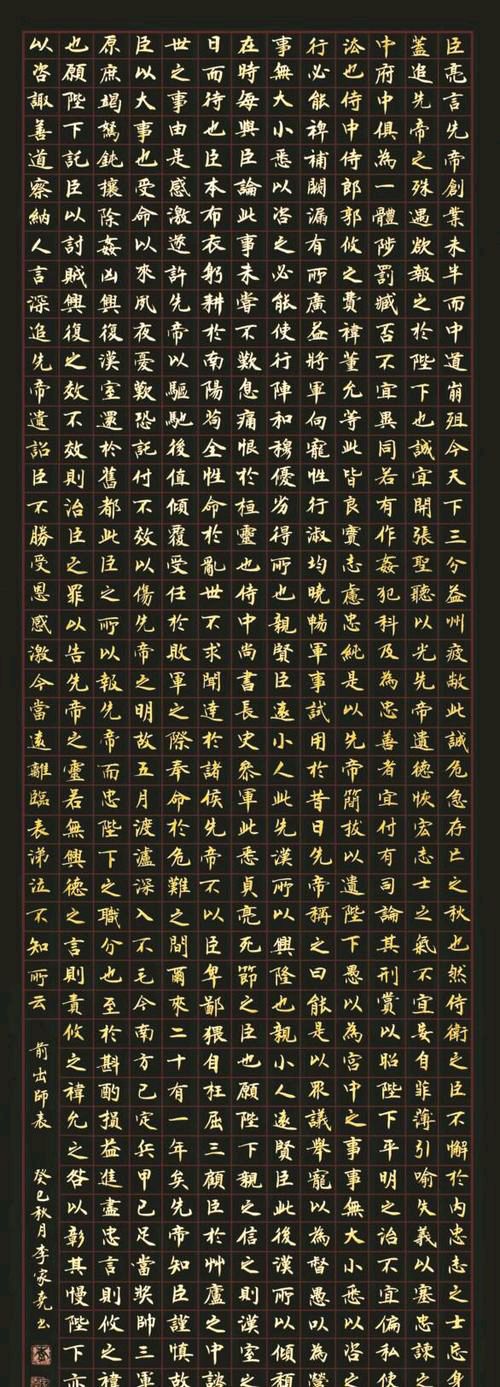 臣亮言先帝創業未半而中道崩殂今天下三分益州疲敝此誠危急存亡之秋也然侍衛之臣不懈於內忠志之士忘身
蓋追先帝之殊遇欲報之於陛下也誠宜開張聖聽以光先帝遺德恢宏志士之氣不宜妄自菲薄引喻失義以塞忠諫之
中府中俱為一體陟罰臧否不宜異同若有作姦犯科及為忠善者宜付有司論其刑賞以昭陛下平明之治不宜偏私使
法也侍中侍郎郭攸之費禕董允等此皆良實志慮忠純是以先帝簡拔以遺陛下愚以為宮中之事事無大小悉以咨之
行必能裨補闕漏有所廣益將軍向寵性行淑均曉暢軍事試用於昔日先帝稱之曰能是以眾議舉寵以為督愚以為營
事無大小悉以咨之必能使行陣和穆優劣得所也親賢臣遠小人此先漢所以興隆也親小人遠賢臣此後漢所以傾頹
在時每與臣論此事未嘗不歎息痛恨於桓靈也侍中尚書長史參軍此悉貞亮死節之臣也願陛下親之信之則漢室之
日而待也臣本布衣躬耕於南陽苟全性命於亂世不求聞達於諸侯先帝不以臣卑鄙猥自枉屈三顧臣於艸廬之中諮
世之事由是感激遂許先帝以驅馳後值傾覆受任於敗軍之際奉命於危難之間爾來二十有一年矣先帝知臣謹慎故
臣以大事也受命以來夙夜憂歎恐託付不效以傷先帝之明故五月渡瀘深入不毛今南方已定兵甲已足當獎帥三軍
原庶竭駑鈍攘除姦凶興復漢室還於舊都此臣之所以報先帝而忠陛下之職分也至於斟酌損益進盡忠言則攸之禕
也願陛下託臣以討賊興復之效不效則治臣之罪以告先帝之靈若無興德之言則責攸之禕允之咎以彰其慢陛下亦
以咨諏善道察納人言深追先帝遺詔臣不勝受恩感激今當遠離臨表涕泣不知所云 前出師表 癸巳秋月李家 書